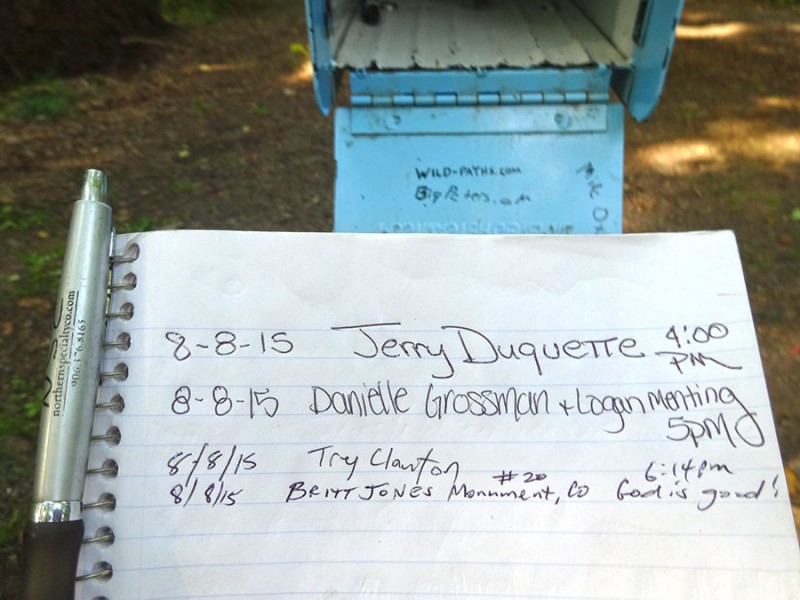 WILD-PATHS.COM
northernspecialtyco.com
906.376.8165
8-8-15 Jerry Duquette 4:00 PM
8-8-15 Danielle Grossman + Logan Menting 5PM
8/8/15 Try Clawton 6:14pm
8/8/15 BRITT JONES #20 Monument, CO God is good!